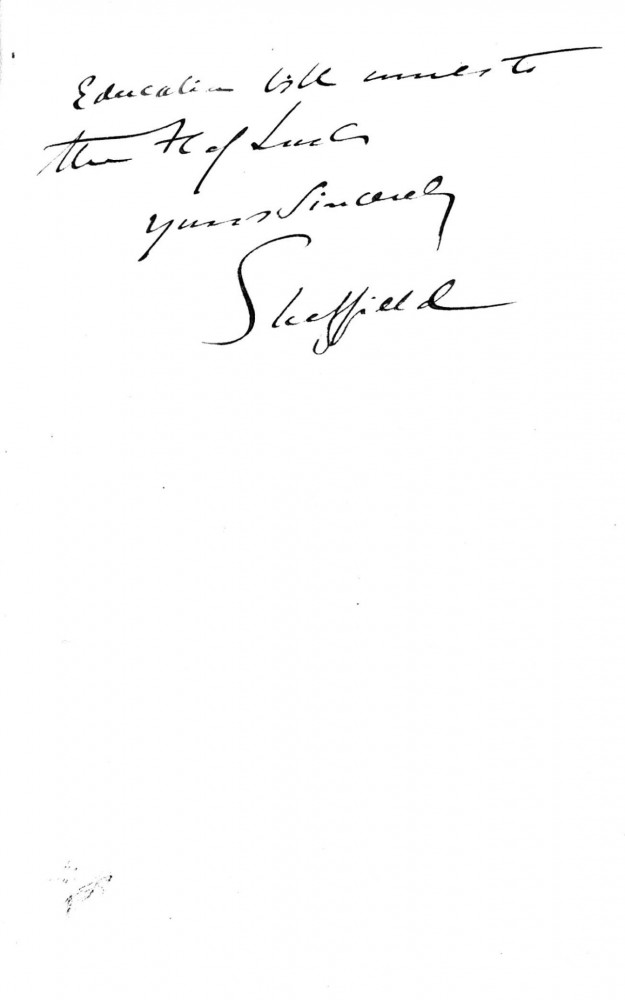 Education bill comes to
the H of Lords
Yours Sincerely
Sheffield